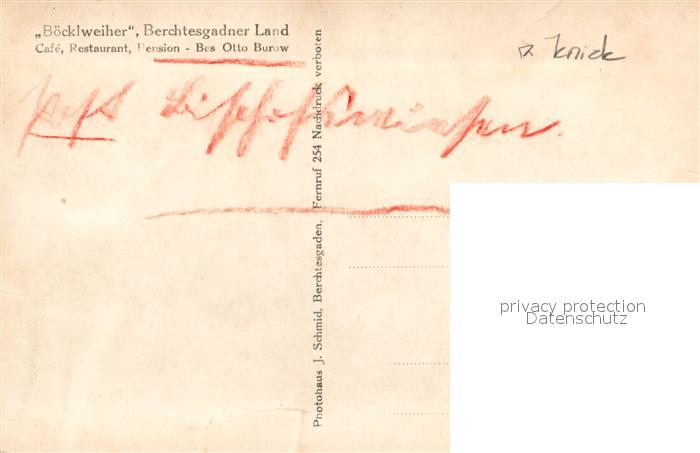 „Böcklweiher“, Berchtesgadner Land
Café, Restaurant, Pension - Bes Otto Burow
Knick
Post Bischofswiesen.
Photohaus J. Schmid, Berchtesgaden, Fernruf 254 Nachdruck verboten
privacy protection
Datenschutz